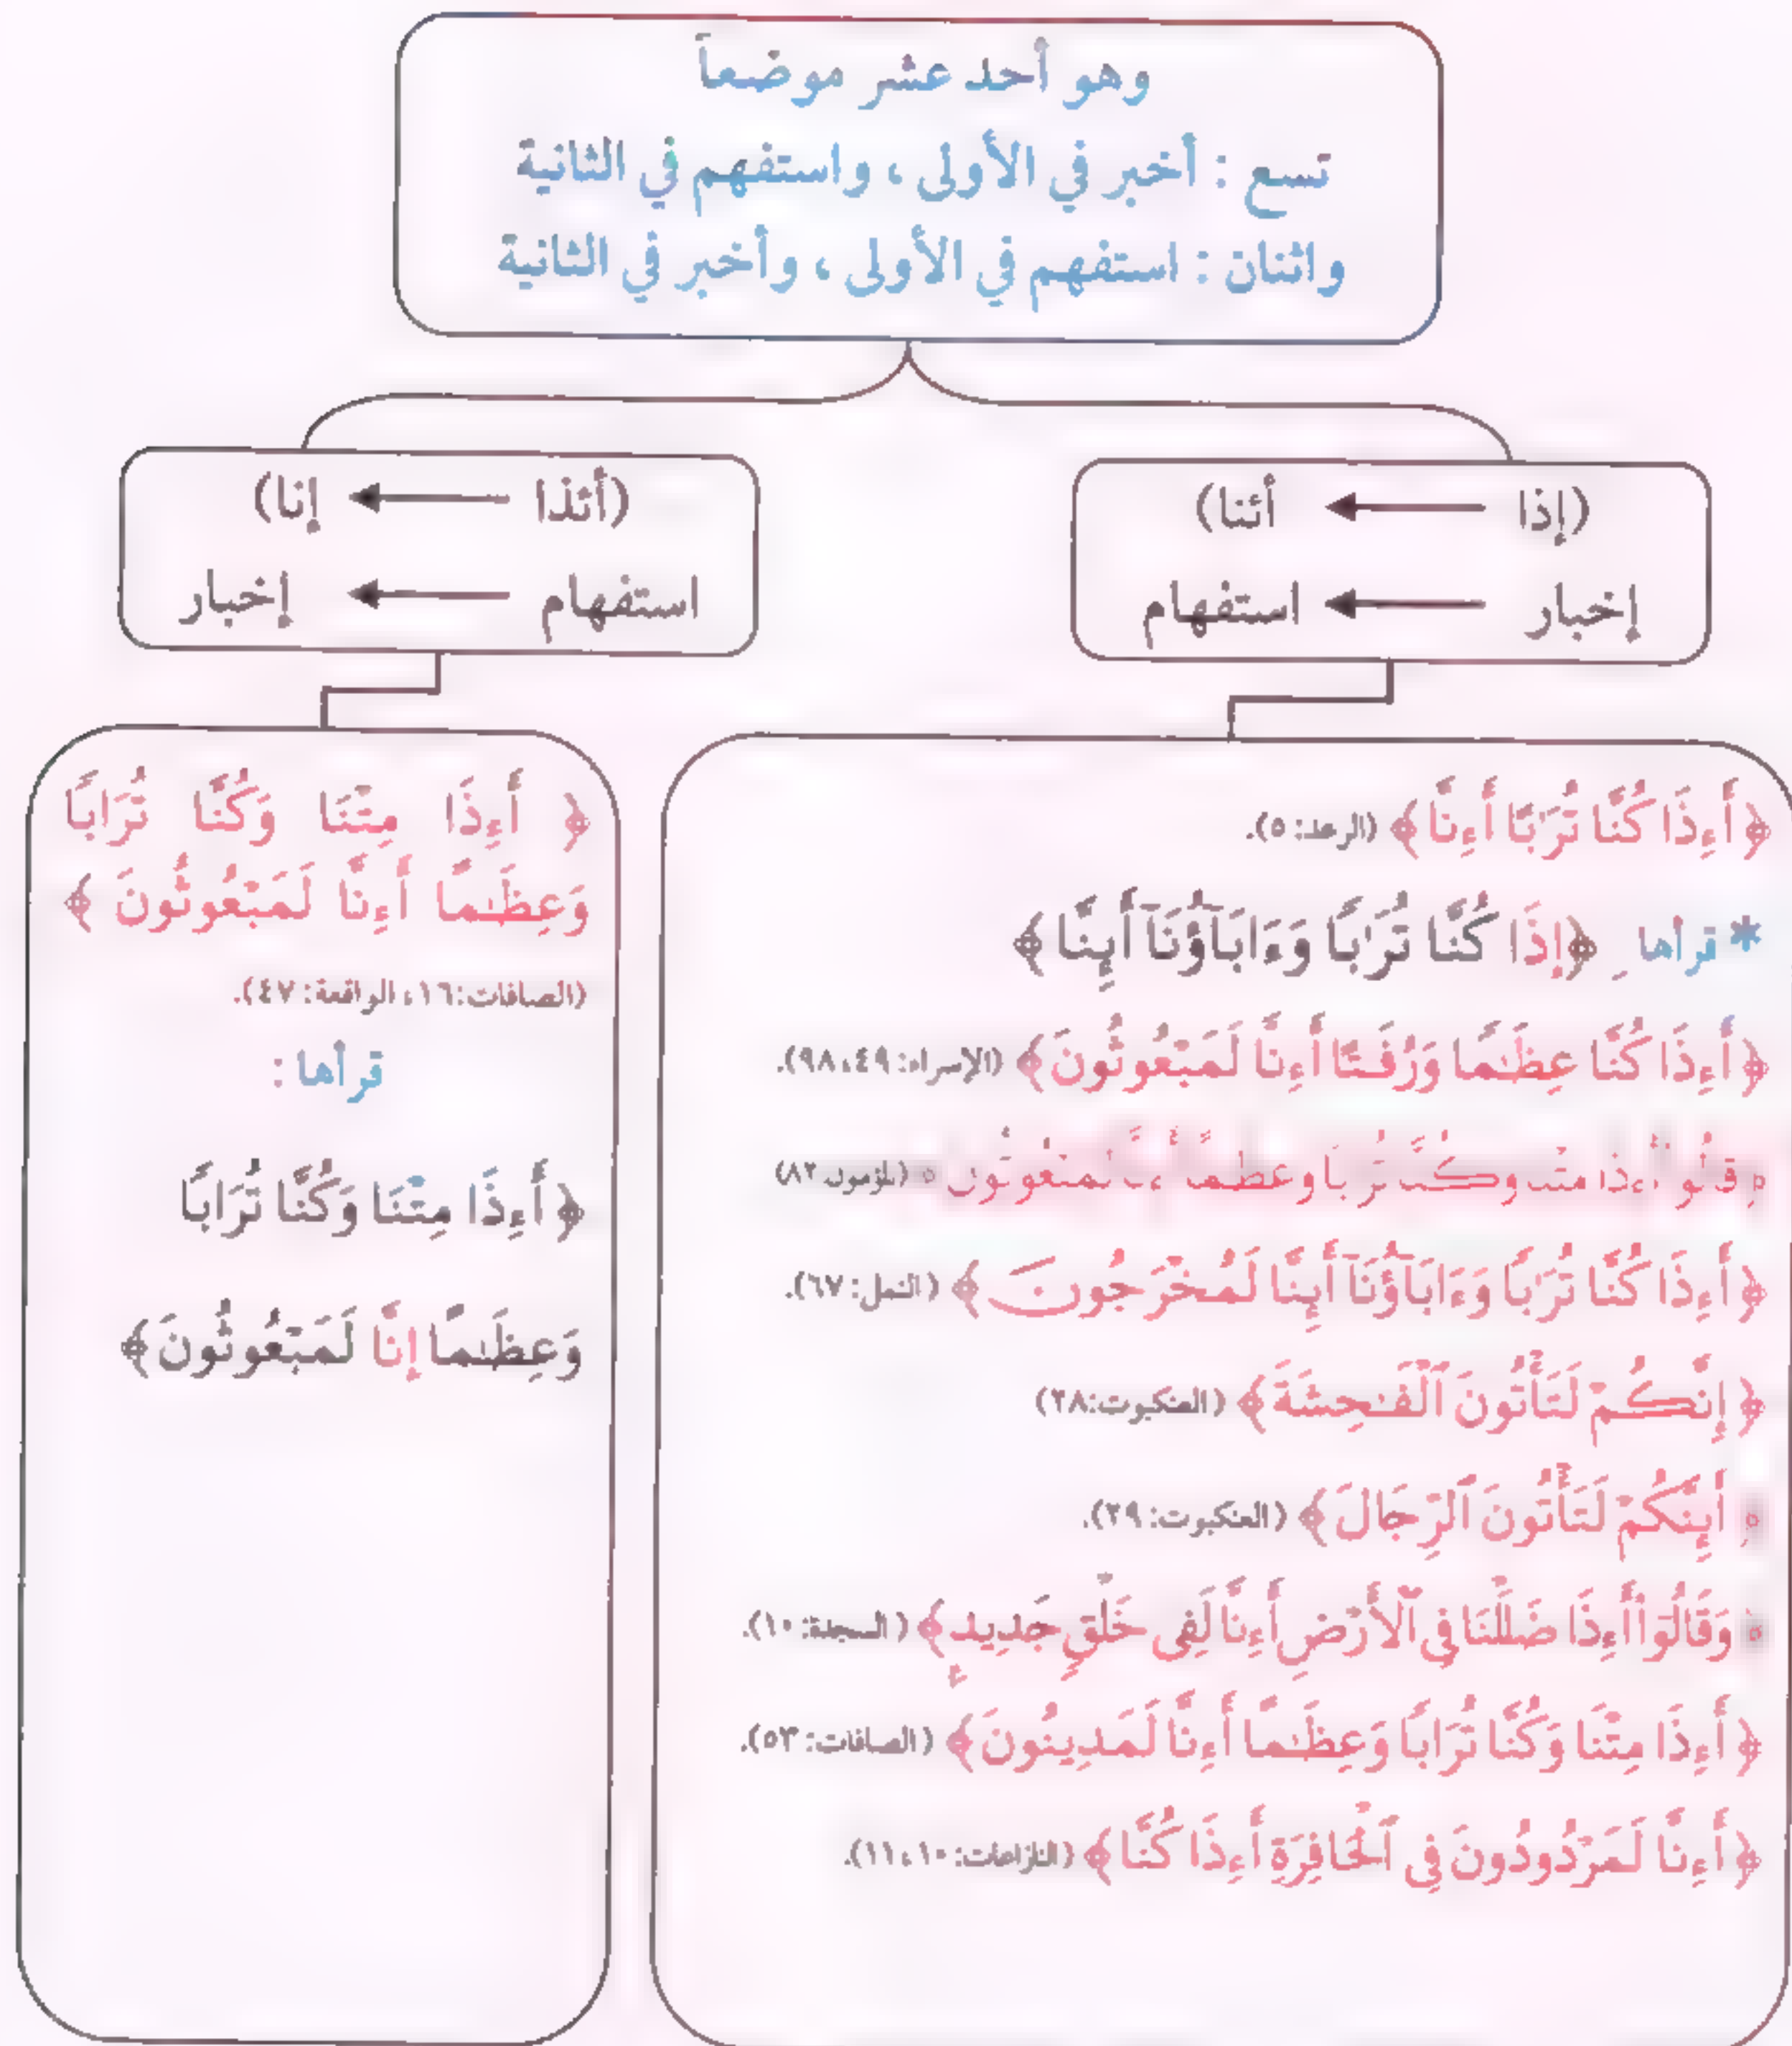 وهو أحد عشر موضعاً
تسع : أخبر في الأولى ، واستفهم في الثانية
واثنان : استفهم في الأولى ، وأخبر في الثانية
(إذا ← أئنا)
إخبار ← استفهام
(أئذا ← إنا)
استفهام ← إخبار
﴿أَءِذَا كُنَّا تُرَٰبًا أَءِنَّا﴾ (الرعد: ٥).
* قرأها ﴿إِذَا كُنَّا تُرَٰبًا وَءَابَآؤُنَآ أَئِنَّا﴾
﴿أَءِذَا كُنَّا عِظَٰمًا وَرُفَٰتًا أَءِنَّا لَمَبْعُوثُونَ﴾ (الإسراء: ٤٩، ٩٨).
قالوا أءذا متنا وكنا ترابا وعظما أءنا لمبعوثون (المؤمنون: ٨٢)
﴿أَءِذَا كُنَّا تُرَٰبًا وَءَابَآؤُنَآ أَئِنَّا لَمُخْرَجُونَ﴾ (النمل: ٦٧).
﴿إِنَّكُمْ لَتَأْتُونَ ٱلْفَٰحِشَةَ﴾ (العنكبوت: ٢٨)
أَئِنَّكُمْ لَتَأْتُونَ ٱلرِّجَالَ﴾ (العنكبوت: ٢٩).
وَقَالُوٓا۟ أَءِذَا ضَلَلْنَا فِى ٱلْأَرْضِ أَءِنَّا لَفِى خَلْقٍ جَدِيدٍ﴾ (السجدة: ١٠).
﴿أَءِذَا مِتْنَا وَكُنَّا تُرَابًا وَعِظَٰمًا أَءِنَّا لَمَدِينُونَ﴾ (الصافات: ٥٣).
﴿أَءِنَّا لَمَرْدُودُونَ فِى ٱلْحَافِرَةِ أَءِذَا كُنَّا﴾ (النازعات: ١٠، ١١).
﴿أَءِذَا مِتْنَا وَكُنَّا تُرَابًا
وَعِظَٰمًا أَءِنَّا لَمَبْعُوثُونَ﴾
(الصافات: ١٦، الواقعة: ٤٧).
قرأها :
﴿أَءِذَا مِتْنَا وَكُنَّا تُرَابًا
وَعِظَٰمًا إِنَّا لَمَبْعُوثُونَ﴾